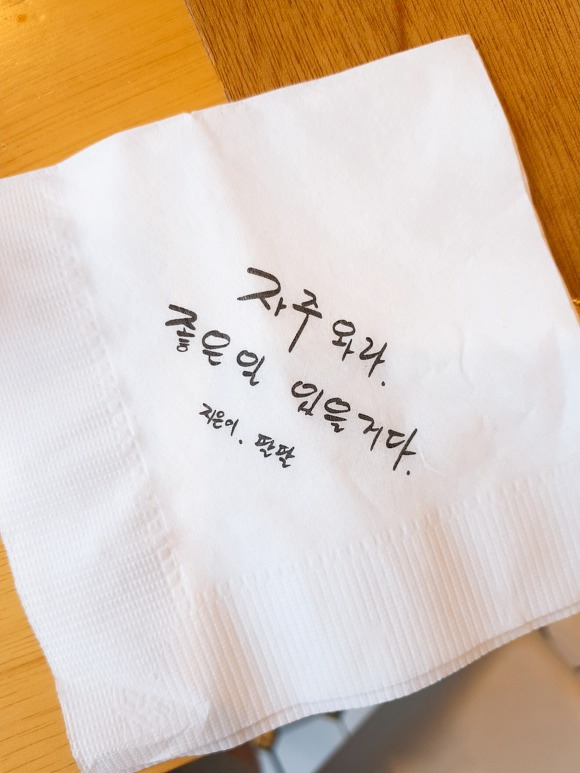 자주 와라.
좋은 일 있을 거다.
지은이. 판판